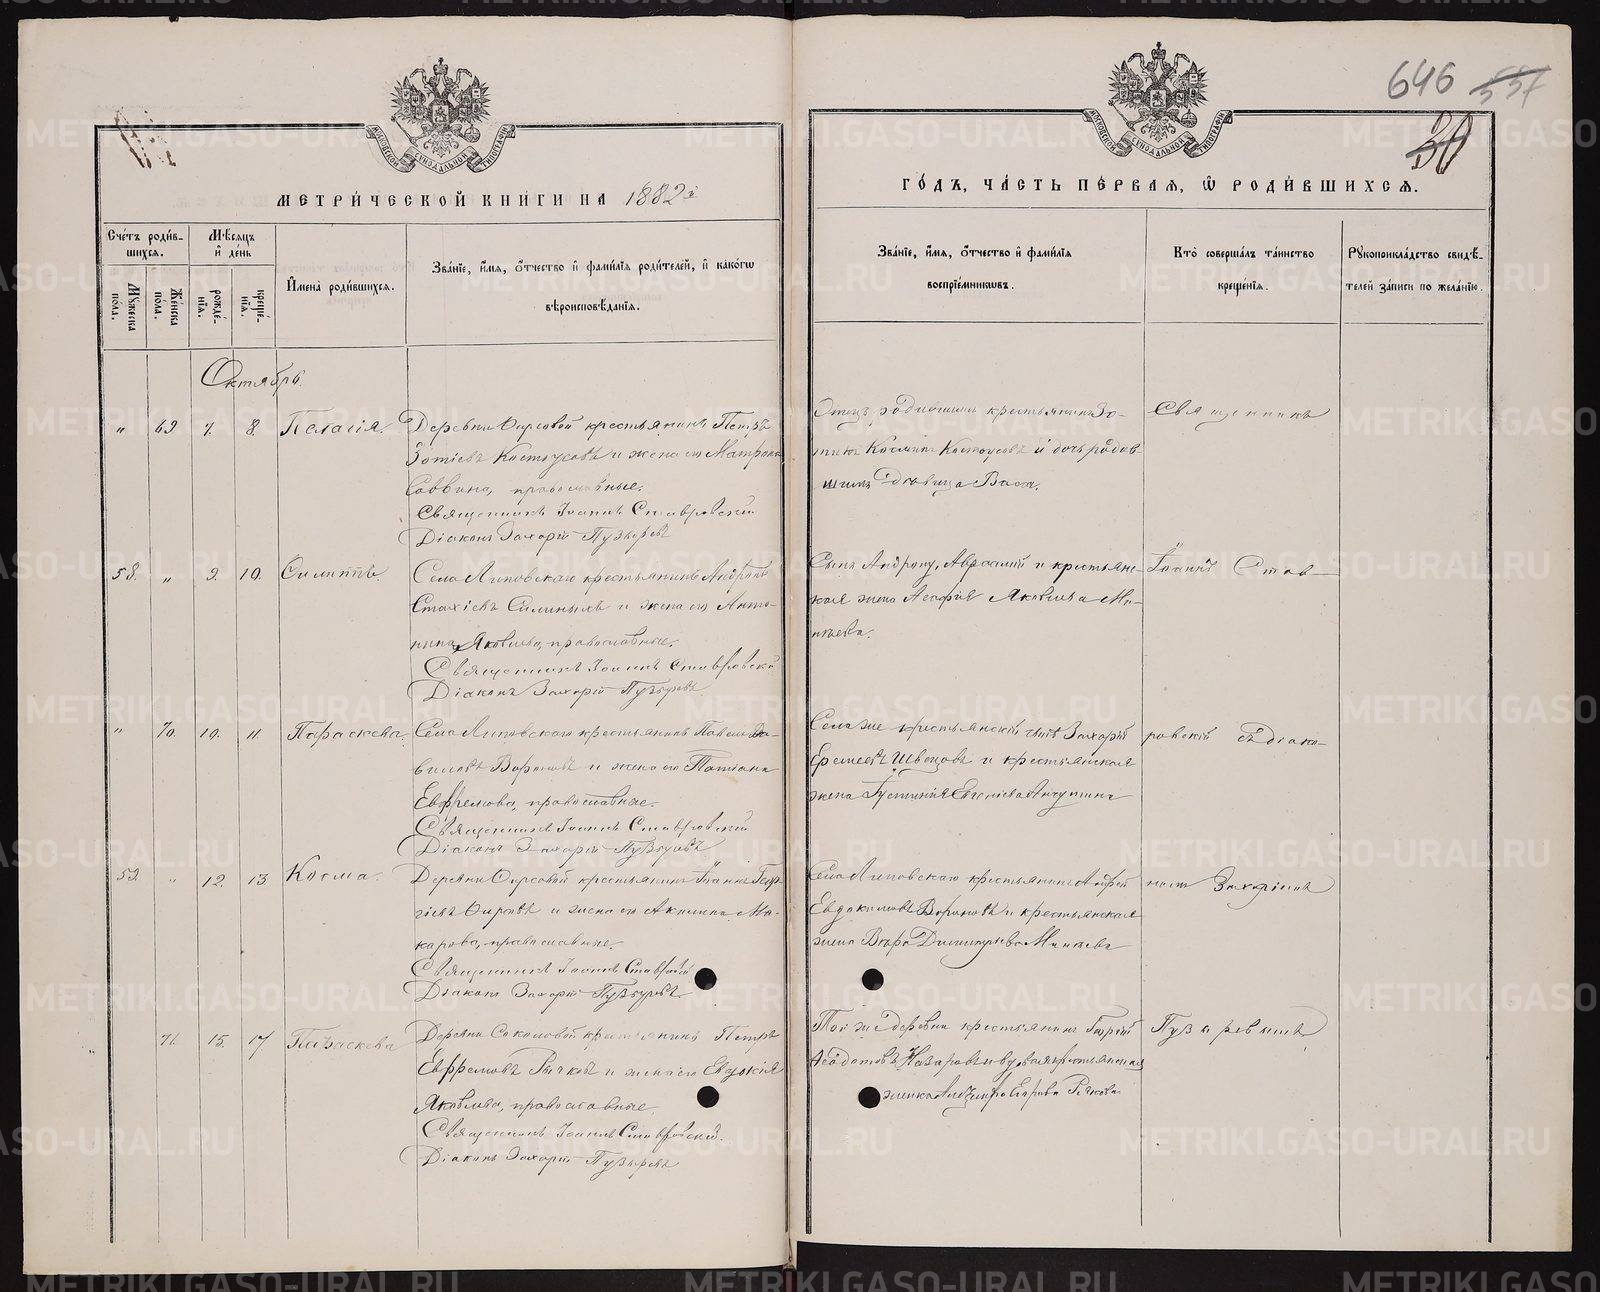 646 537
30
МОСКОВСКОЙ СѴНОДАЛЬНОЙ ТИПОГРАФІИ
МОСКОВСКОЙ СѴНОДАЛЬНОЙ ТИПОГРАФІИ
МЕТРИ́ЧЕСКОЙ КНИ́ГИ НА 1882й
ГО́ДЪ, ЧА́СТЬ ПЕ́РВАЯ, Ѽ РОДИ́ВШИХСЯ.
Сче́тъ роди́в-
шихся.
Мꙋ́жеска по́ла.
Же́нска по́ла.
Мѣ́сяцъ и҆ де́нь
рожде́-
нїѧ.
креще́-
нїѧ.
И҆мена̀ роди́вшихся.
Зва́нїе, и҆́мѧ, ѻ҆́тчество и҆ фамѝлїѧ роди́телей, и҆ како́гѡ
вѣроисповѣ́данїѧ.
Зва́нїе, и҆́мѧ, ѻ҆́тчество и҆ фамѝлїѧ
воспрїе́мникѡвъ.
Кто̀ соверша́лъ та́инство
креще́нїѧ.
Рꙋкоприкла́дство свидѣ́-
телей за́писи по жела́нїю.
Октябрь
„ 69 7. 8. Пелагія. Деревни Фирсовой крестьянинъ Петръ
Зотіевъ Костоусовъ и жена его Матрона
Саввина, православные.
Священникъ Іоаннъ Ставровскій
Діаконъ Захарій Пузыревъ
Отецъ родившаго крестьянинъ Зо-
Костоусовъ и дочь родив
девица Васса.
Священникъ
58. „ 9. 10. Филиппъ. Села Липовскаго крестьянинъ Андронъ
Стахіевъ и жена его Анто-
нина Яковлева, православные.
Священникъ Іоаннъ Ставровскій
Діаконъ Захарій Пузыревъ
Сынъ и крестьянс-
кая жена Агафія Яковлева Ми-
нѣева.
Іоаннъ Став-
„ 70. 10. 11. Параскева. Села Липовскаго крестьянинъ Павелъ Да-
виловъ Вороновъ и жена его Татіана
Евфремова, православные.
Священникъ Іоаннъ Ставровскій
Діаконъ Захарій Пузыревъ
Села же крестьянскій сынъ Захарій
Еремеевъ Швецовъ и крестьянская
жена Евгеніева
ровскій съ діако-
59. „ 12. 13. Косма. Деревни Фирсовой крестьянинъ Іоаннъ Геор-
гіевъ Фирсовъ и жена его Акилина Ма-
карова, православные.
Священникъ Іоаннъ Ставровскій
Діаконъ Захарій Пузыревъ
Села Липовскаго крестьянинъ Андрей
Евдокимовъ Вороновъ и крестьянская
жена Вѣра Димитріева Минѣева
номъ Захаріемъ
„ 71. 15. 17 Параскева Деревни Соколовой крестьянинъ Петръ
Евфремовъ Рычковъ и жена его Евдокія
Яковлева, православные.
Священникъ Іоаннъ Ставровскій.
Діаконъ Захарій Пузыревъ
Той же деревни крестьянинъ Георгій
Ѳеодотовъ Назаровъ и
женка Александра Егорова Рычкова
Пузыревымъ